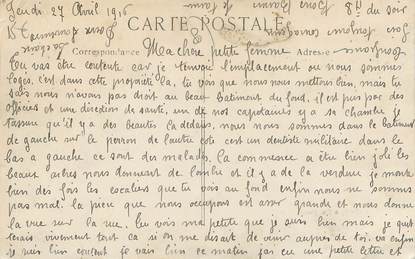 Jeudi 27 Avril 1916
8H du soir
CARTE POSTALE
Correspondance Ma chère petite femme Adresse
Tu vas être contente car je t'envoie l'emplacement ou nous sommes
logés, c'est dans cette propriété la, tu vois que nous nous mettons bien, mais tu
sais nous n'avons pas droit au beau batiment du fond, il est pris par des
officiers et une direction de santé, un de nos capitaines y a sa chambre je
t'assure qu'il y a des beautés la dedans, nous nous sommes dans le batiment
de gauche sur le perron de l'autre coté c'est un dentiste militaire dans le
bas a gauche ce sont des malades. la commence a être bien joli les
beaux arbres nous donnent de l'ombre et il y a de la verdure je monte
bien des fois les escaliers que tu vois au fond enfin nous ne sommes
pas mal. la pièce que nous occupons est assez grande et nous donne
la vue sur la rue. tu vois ma petite que je suis bien mais je quit
terais vivement tout ca si on me disait de venir auprès de toi. va enfin
je suis bien content je vais bien ce matin j'ai eu une petite lettre et